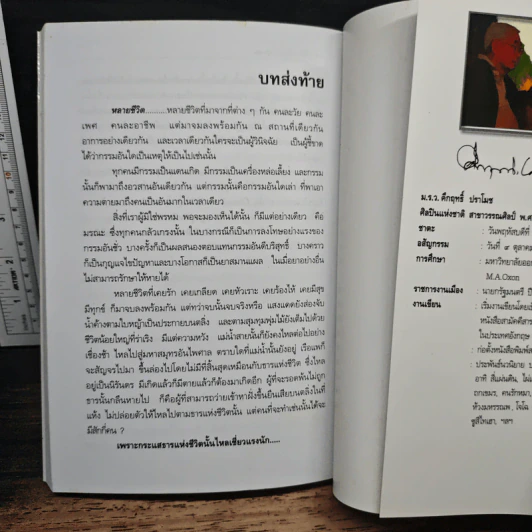 บทส่งท้าย
หลายชีวิต..........หลายชีวิตที่มาจากที่ต่าง ๆ กัน คนละวัย คนละ
เพศ คนละอาชีพ แต่มาจมลงพร้อมกัน ณ สถานที่เดียวกัน
อาการอย่างเดียวกัน และเวลาเดียวกันใครจะเป็นผู้วินิจฉัย เป็นผู้ชี้ขาด
ได้ว่ากรรมอันใดเป็นเหตุให้เป็นไปเช่นนั้น
ทุกคนมีกรรมเป็นแดนเกิด มีกรรมเป็นเครื่องหล่อเลี้ยง และกรรม
นั้นก็พามาถึงอวสานอันเดียวกัน แต่กรรมนั้นคือกรรมอันใดเล่า ที่พาเอา
ความตายมาถึงคนเป็นอันมากในเวลาเดียว
สิ่งที่เราผู้มีใช่พรหม พอจะมองเห็นได้นั้น ก็มีแต่อย่างเดียว คือ
มรณะ ซึ่งทุกคนกลัวเกรงนั้น ในบางกรณีก็เป็นการลงโทษอย่างแรงของ
กรรมอันชั่ว บางครั้งก็เป็นผลสนองตอบแทนกรรมอันดีบริสุทธิ์ บางคราว
ก็เป็นกุญแจไขปัญหาและบางโอกาสก็เป็นยาสมานแผล ในเมื่อยาอย่างอื่น
ไม่สามารถรักษาให้หายได้
หลายชีวิตที่เคยรัก เคยเกลียด เคยหัวเราะ เคยร้องไห้ เคยมีสุข
มีทุกข์ ก็มาจบลงพร้อมกัน แต่ทว่าจบนั้นจบจริงหรือ แสงแดดยังส่องจับ
น้ำค้างตามใบหญ้าเป็นประกายบนตลิ่ง และตามสุมทุมพุ่มไม้ยังเต็มไปด้วย
ชีวิตน้อยใหญ่ที่ร่าเริง มีแต่ความหวัง แม่น้ำสายนั้นก็ยังคงไหลต่อไปอย่าง
เชื่องช้า ไหลไปสู่มหาสมุทรอันไพศาล ตราบใดที่แม่น้ำนั้นยังอยู่ เรือแพก็
จะสัญจรไปมา ขึ้นล่องไปโดยไม่มีที่สิ้นสุดเหมือนกับธารแห่งชีวิต ซึ่งไหล
อยู่เป็นนิรันดร มีเกิดแล้วก็มีตายแล้วก็ต้องมาเกิดอีก ผู้ที่จะรอดพ้นไม่ถูก
ธารนั้นกลืนหายไป ก็คือผู้ที่สามารถว่ายเข้าหาฝั่งขึ้นยืนเสียบนตลิ่งในที่
แห้ง ไม่ปล่อยตัวให้ไหลไปตามธารแห่งชีวิตนั้น แต่คนที่จะทำเช่นนั้นได้จะ
มีสักกี่คน ?
เพราะกระแสธารแห่งชีวิตนั้นไหลเชี่ยวแรงนัก.....
ม.ร.ว. คึกฤทธิ์ ปราโมช
ศิลปินแห่งชาติ สาขาวรรณศิลป์ พ.ศ.
ชาตะ : วันพฤหัสบดีที่
อสัญกรรม : วันที่ ๙ ตุลาคม
การศึกษา : มหาวิทยาลัยออก
M.A.Oxon
ราชการงานเมือง : นายกรัฐมนตรี ปี
งานเขียน : เริ่มงานเขียนโดยเ
หนังสือสมัคคีสาร
ในประเทศอังกฤษ
: ก่อตั้งหนังสือพิมพ์ส
: ประพันธ์นวนิยาย บ
อาทิ สี่แผ่นดิน, ไผ่
ถกเขมร, คนรักหมา,
ห้วงมหรรณพ, โจโฉ
ซูสีไทเฮา, ฯลฯ